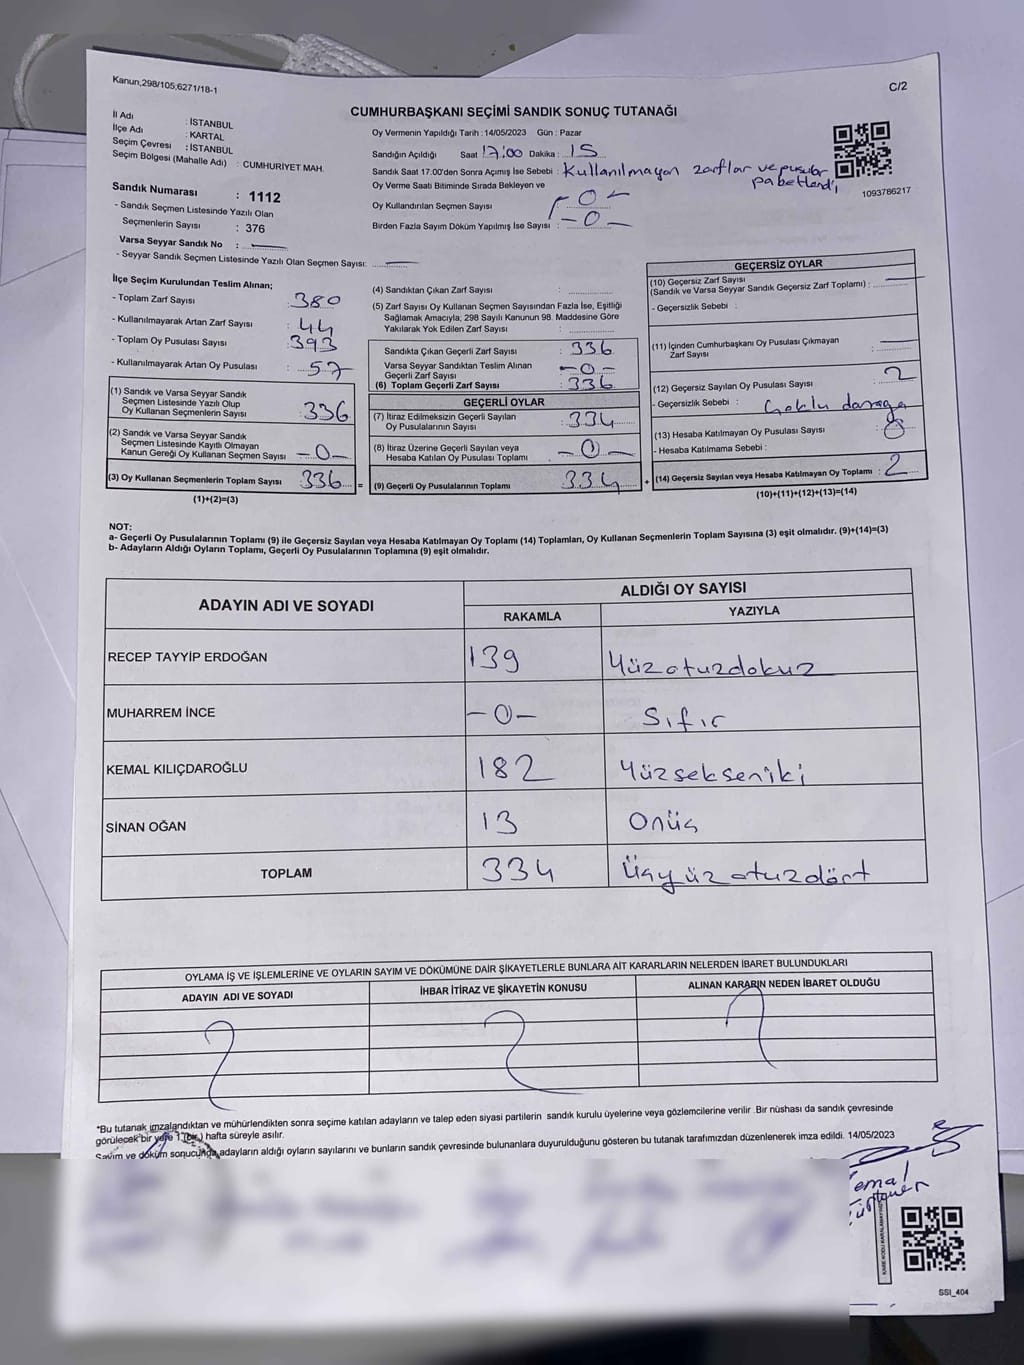 Kanun,298/105,6271/18-1
C/2
CUMHURBAŞKANI SEÇİMİ SANDIK SONUÇ TUTANAĞI
İl Adı : İSTANBUL
İlçe Adı : KARTAL
Seçim Çevresi : İSTANBUL
Seçim Bölgesi (Mahalle Adı) : CUMHURİYET MAH.
Sandık Numarası : 1112
- Sandık Seçmen Listesinde Yazılı Olan
Seçmenlerin Sayısı : 376
Varsa Seyyar Sandık No :
- Seyyar Sandık Seçmen Listesinde Yazılı Olan Seçmen Sayısı:
Oy Vermenin Yapıldığı Tarih : 14/05/2023 Gün : Pazar
Sandığın Açıldığı Saat 17:00 Dakika : 15
Sandık Saat 17:00'den Sonra Açımış İse Sebebi : Kullanılmayan zarflar ve pusular
paketlendi
Oy Verme Saati Bitiminde Sırada Bekleyen ve
Oy Kullandırılan Seçmen Sayısı -0-
Birden Fazla Sayım Döküm Yapılmış İse Sayısı : -0-
1093786217
İlçe Seçim Kurulundan Teslim Alınan;
- Toplam Zarf Sayısı : 380
- Kullanılmayarak Artan Zarf Sayısı : 44
- Toplam Oy Pusulası Sayısı : 393
- Kullanılmayarak Artan Oy Pusulası : 57
(1) Sandık ve Varsa Seyyar Sandık
Seçmen Listesinde Yazılı Olup
Oy Kullanan Seçmenlerin Sayısı : 336
(2) Sandık ve Varsa Seyyar Sandık
Seçmen Listesinde Kayıtlı Olmayan
Kanun Gereği Oy Kullanan Seçmen Sayısı -0-
(3) Oy Kullanan Seçmenlerin Toplam Sayısı 336 =
(1)+(2)=(3)
(4) Sandıktan Çıkan Zarf Sayısı :
(5) Zarf Sayısı Oy Kullanan Seçmen Sayısından Fazla İse, Eşitliği
Sağlamak Amacıyla; 298 Sayılı Kanunun 98. Maddesine Göre
Yakılarak Yok Edilen Zarf Sayısı :
Sandıkta Çıkan Geçerli Zarf Sayısı : 336
Varsa Seyyar Sandıktan Teslim Alınan
Geçerli Zarf Sayısı -0-
(6) Toplam Geçerli Zarf Sayısı : 336
GEÇERLİ OYLAR
(7) İtiraz Edilmeksizin Geçerli Sayılan
Oy Pusulalarının Sayısı : 334
(8) İtiraz Üzerine Geçerli Sayılan veya
Hesaba Katılan Oy Pusulası Toplamı -0-
(9) Geçerli Oy Pusulalarının Toplamı 334 +
GEÇERSİZ OYLAR
(10) Geçersiz Zarf Sayısı
(Sandık ve Varsa Seyyar Sandık Geçersiz Zarf Toplamı) :
- Geçersizlik Sebebi :
(11) İçinden Cumhurbaşkanı Oy Pusulası Çıkmayan
Zarf Sayısı :
(12) Geçersiz Sayılan Oy Pusulası Sayısı : 2
- Geçersizlik Sebebi : Çoklu damga
(13) Hesaba Katılmayan Oy Pusulası Sayısı
- Hesaba Katılmama Sebebi :
(14) Geçersiz Sayılan veya Hesaba Katılmayan Oy Toplamı : 2
(10)+(11)+(12)+(13)=(14)
NOT:
a- Geçerli Oy Pusulalarının Toplamı (9) ile Geçersiz Sayılan veya Hesaba Katılmayan Oy Toplamı (14) Toplamları, Oy Kullanan Seçmenlerin Toplam Sayısına (3) eşit olmalıdır. (9)+(14)=(3)
b- Adayların Aldığı Oyların Toplamı, Geçerli Oy Pusulalarının Toplamına (9) eşit olmalıdır.
ADAYIN ADI VE SOYADI
ALDIĞI OY SAYISI
RAKAMLA YAZIYLA
RECEP TAYYİP ERDOĞAN 139 Yüzotuzdokuz
MUHARREM İNCE -0- Sıfır
KEMAL KILIÇDAROĞLU 182 Yüzsekseniki
SİNAN OĞAN 13 Onüç
TOPLAM 334 Üçyüzotuzdört
OYLAMA İŞ VE İŞLEMLERİNE VE OYLARIN SAYIM VE DÖKÜMÜNE DAİR ŞİKAYETLERLE BUNLARA AİT KARARLARIN NELERDEN İBARET BULUNDUKLARI
ADAYIN ADI VE SOYADI İHBAR İTİRAZ VE ŞİKAYETİN KONUSU ALINAN KARARIN NEDEN İBARET OLDUĞU
*Bu tutanak imzalandıktan ve mühürlendikten sonra seçime katılan adayların ve talep eden siyasi partilerin sandık kurulu üyelerine veya gözlemcilerine verilir .Bir nüshası da sandık çevresinde
görülecek bir yere 1 (bir) hafta süreyle asılır.
Sayım ve döküm sonucunda adayların aldığı oyların sayılarını ve bunların sandık çevresinde bulunanlara duyurulduğunu gösteren bu tutanak tarafımızdan düzenlenerek imza edildi. 14/05/2023
SSI_404